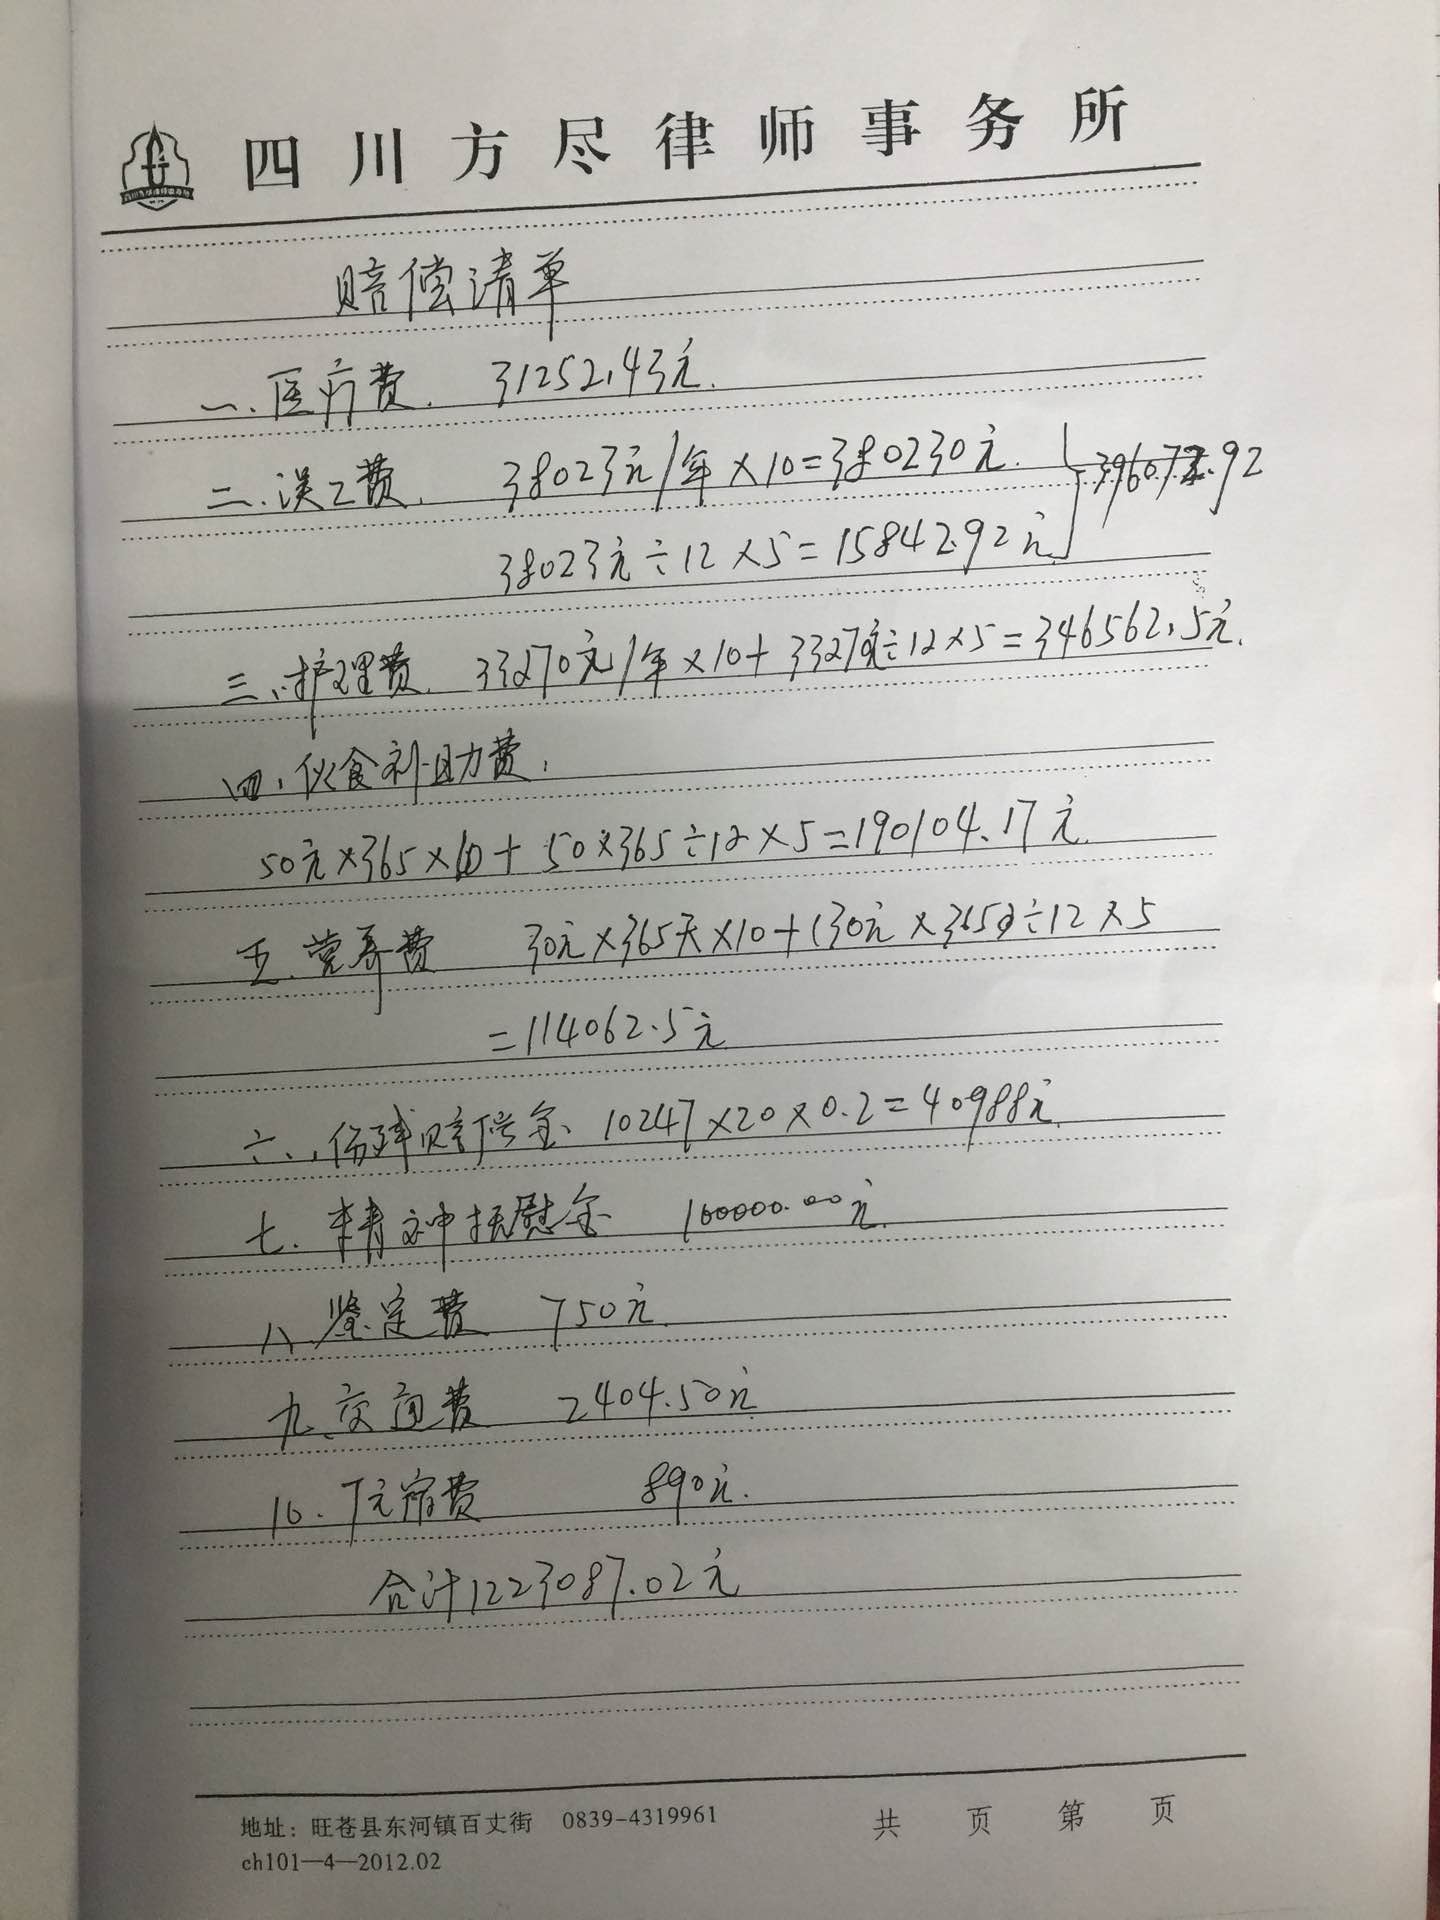 四川方尽律师事务所
赔偿清单
一、医疗费. 31252.43元.
二、误工费. 38023元/年×10=380230元. } 396072.92
38023元÷12×5=15842.92元
三、护理费. 33270元/年×10+33270元÷12×5=346562.5元.
四、伙食补助费.
50元×365×10+50×365÷12×5=190104.17元.
五、营养费 30元×365天×10+(30元×365)÷12×5
=114062.5元
六、伤残赔偿金、10247×20×0.2=40988元.
七、精神抚慰金 100000.00元.
八、鉴定费 750元.
九、交通费 2404.50元
10.住宿费 890元.
合计1223087.02元
地址：旺苍县东河镇百丈街 0839-4319961 共 页 第 页
ch101—4—2012.02